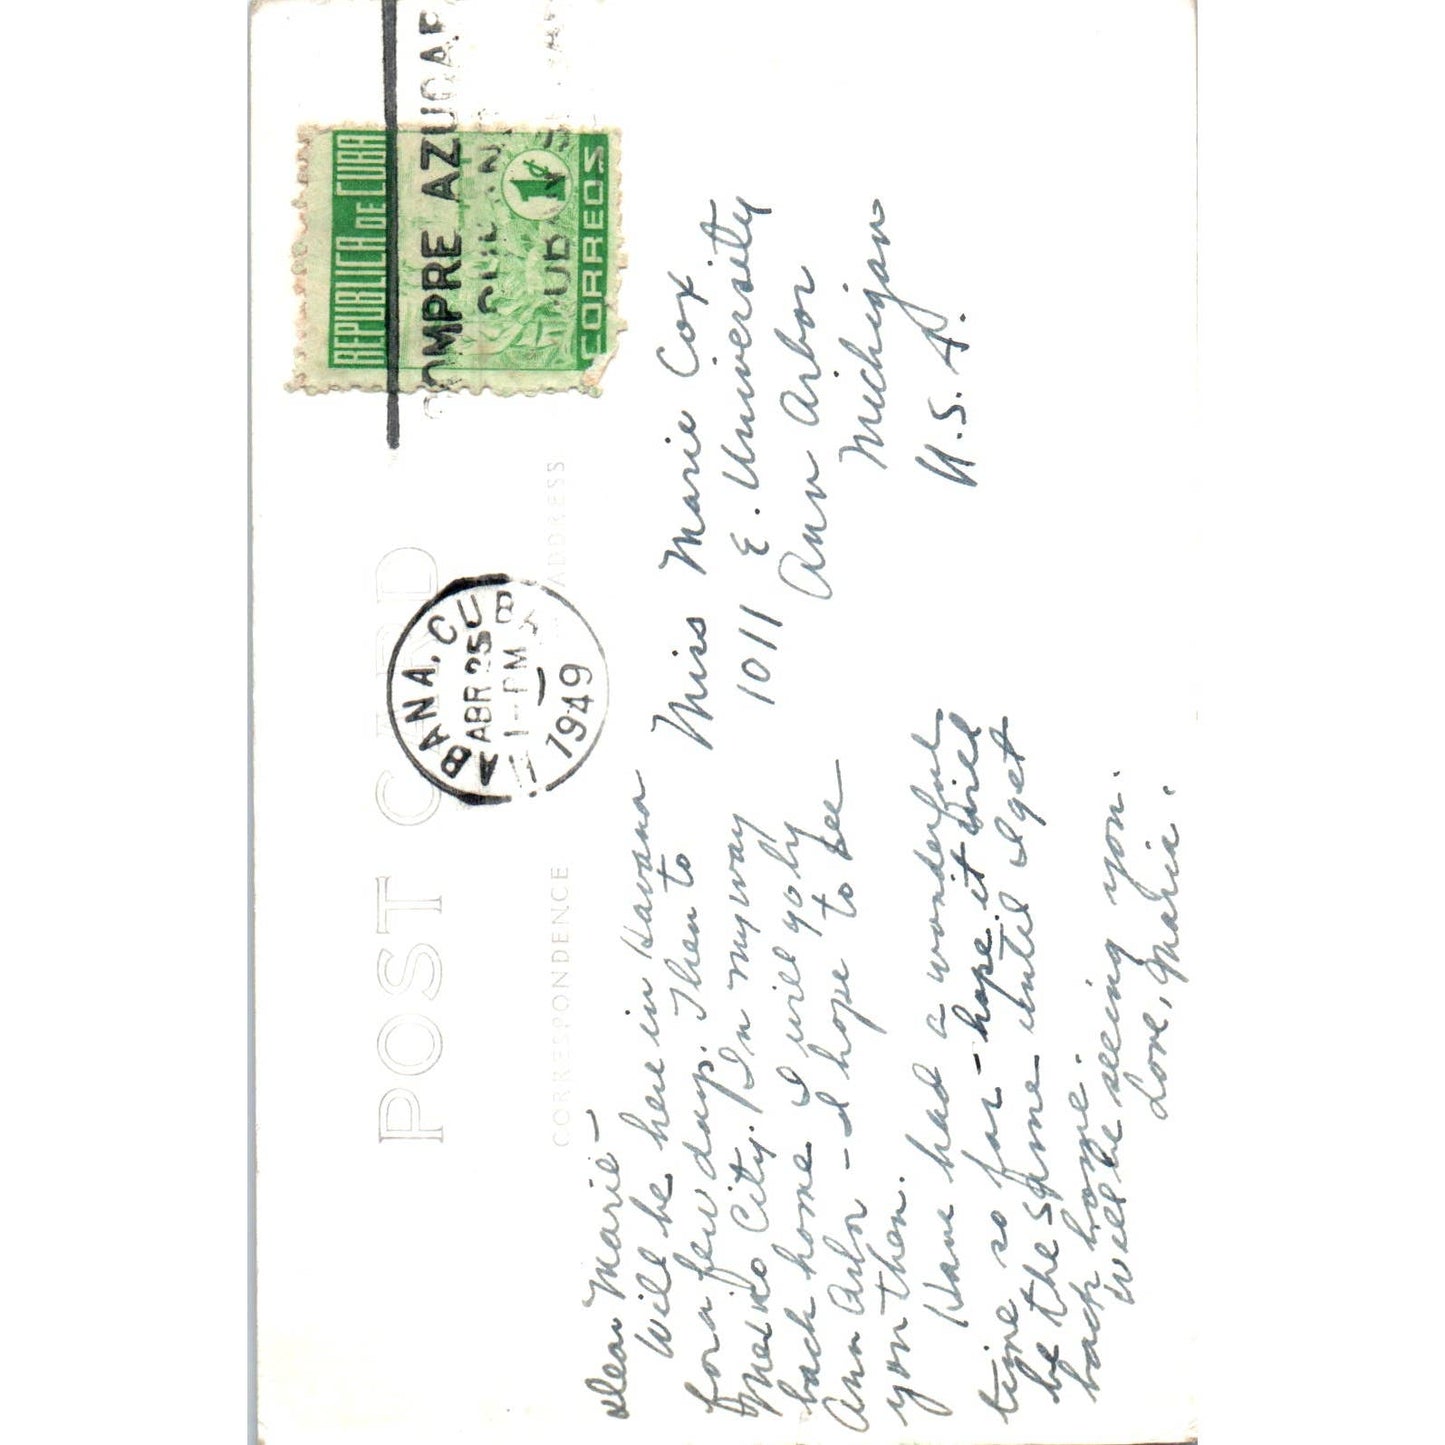 POST CARD
CORRESPONDENCE
ADDRESS
HABANA, CUBA
ABR 25
1-PM
1949
COMPRE AZUCAR
REPUBLICA DE CUBA
1¢
CORREOS
Dear Marie —
Will be here in Havana
for a few days. Then to
Mexico City. On my way
back home I will go by
Ann Arbor — I hope to see
you then.
Have had a wonderful
time so far — hope it will
be the same until I get
back home.
Will be seeing you.
Love, Maria.
Miss Marie Cox.
1011 E. University
Ann Arbor
Michigan
U.S.A.